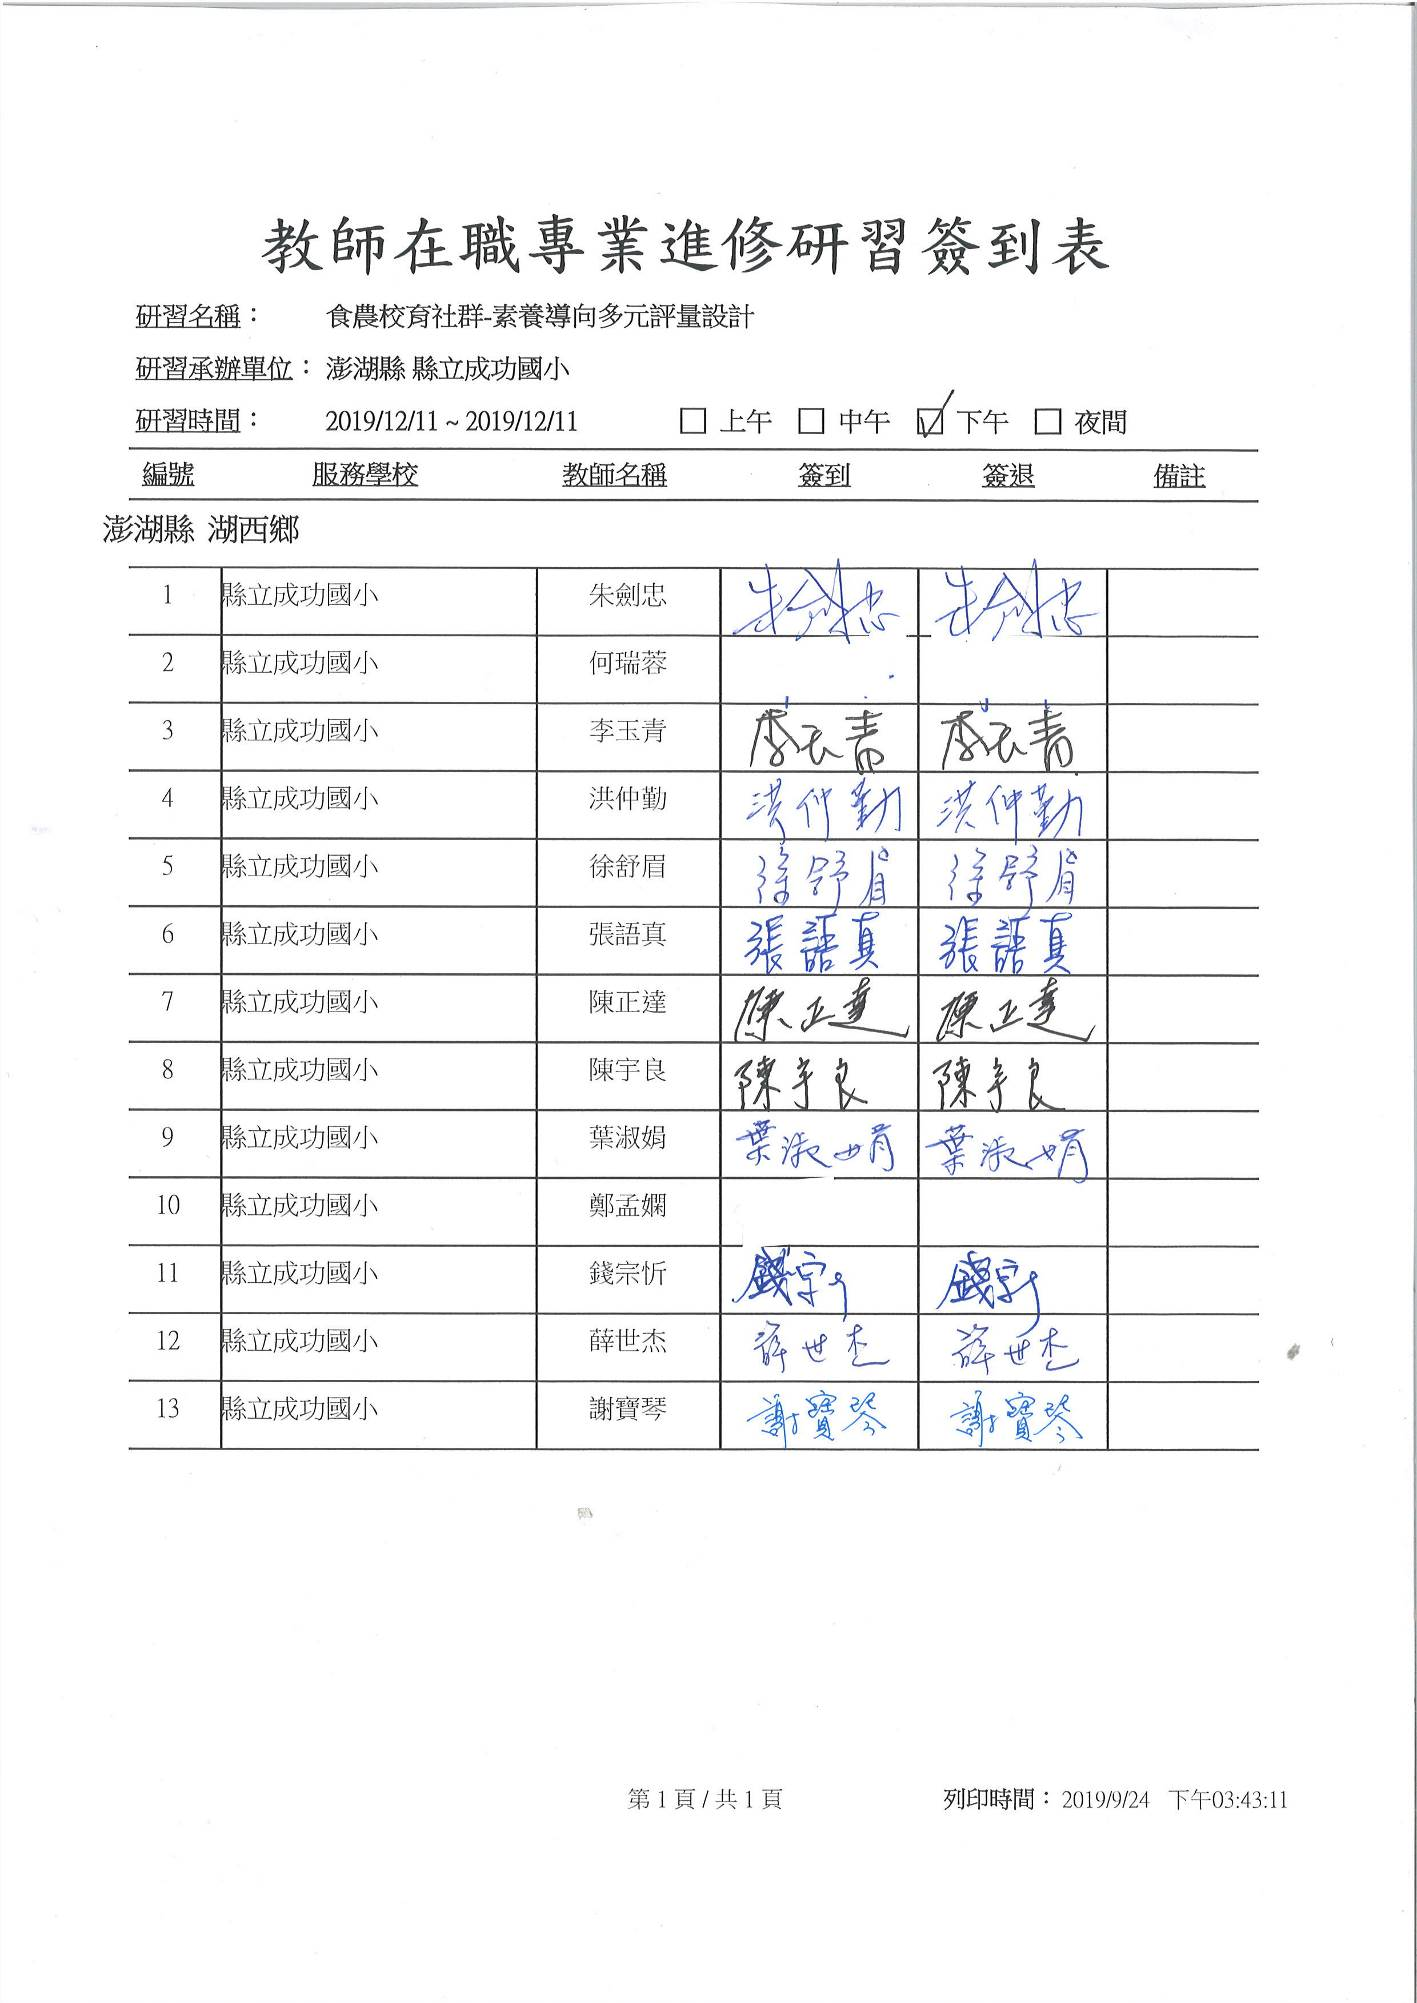 教師在職專業進修研習簽到表
研習名稱： 食農校育社群-素養導向多元評量設計
研習承辦單位： 澎湖縣 縣立成功國小
研習時間： 2019/12/11 ~ 2019/12/11 □ 上午 □ 中午 ☑ 下午 □ 夜間
編號 服務學校 教師名稱 簽到 簽退 備註
澎湖縣 湖西鄉
1 縣立成功國小 朱劍忠 朱劍忠 朱劍忠
2 縣立成功國小 何瑞蓉
3 縣立成功國小 李玉青 李玉青 李玉青
4 縣立成功國小 洪仲勤 洪仲勤 洪仲勤
5 縣立成功國小 徐舒眉 徐舒眉 徐舒眉
6 縣立成功國小 張語真 張語真 張語真
7 縣立成功國小 陳正達 陳正達 陳正達
8 縣立成功國小 陳宇良 陳宇良 陳宇良
9 縣立成功國小 葉淑娟 葉淑娟 葉淑娟
10 縣立成功國小 鄭孟嫻
11 縣立成功國小 錢宗忻 錢宗忻 錢宗忻
12 縣立成功國小 薛世杰 薛世杰 薛世杰
13 縣立成功國小 謝寶琴 謝寶琴 謝寶琴
第 1 頁 / 共 1 頁 列印時間： 2019/9/24 下午03:43:11